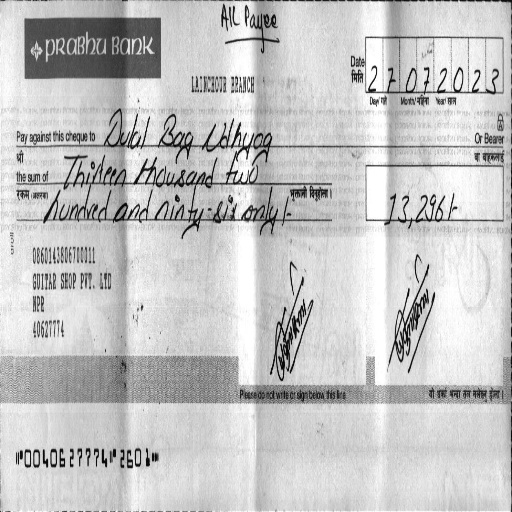 A/C Payee
PRABHU BANK
LAINCHOUR BRANCH
Date
मिति
27072023
Day/ गते Month/ महिना Year/ साल
Pay against this cheque to Dulal Bag Udhyog Or Bearer
श्री वा वाहकलाई
the sum of Thirteen thousand two
रकम (अक्षरमा) hundred and ninty-six only/- भुक्तानी दिनुहोला । 13,296/-
0860143806700011
GUITAR SHOP PVT. LTD
NPR
40627774
Please do not write or sign below this line
यो रेखा भन्दा तल नलेख्नु होला ।
⑈0040627774⑈2601⑈